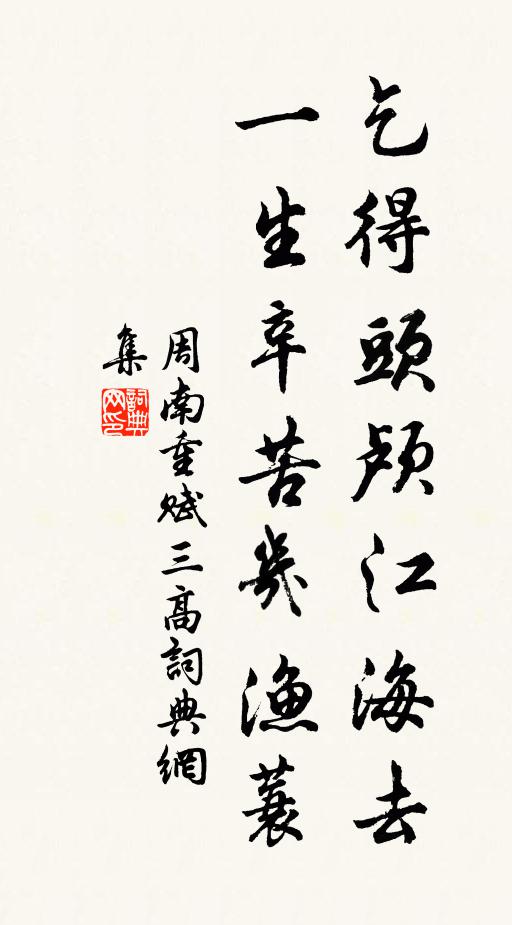 乞得頭顱江海去
一生辛苦幾漁蓑
周南重賦三高詞典網
集
詞典
网印